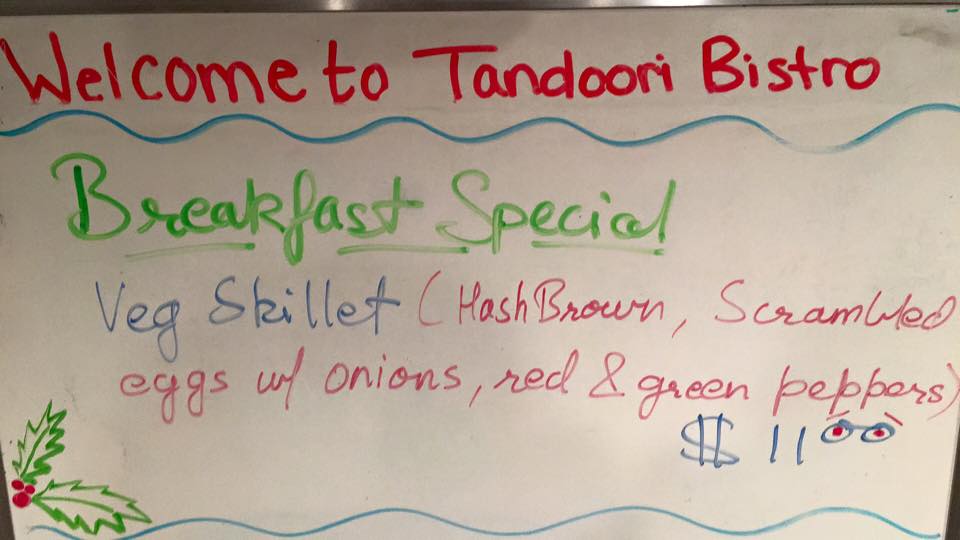 Welcome to Tandoori Bistro
Breakfast Special
Veg Skillet (HashBrown, Scrambled
eggs w/ onions, red & green peppers)
$ 11 00